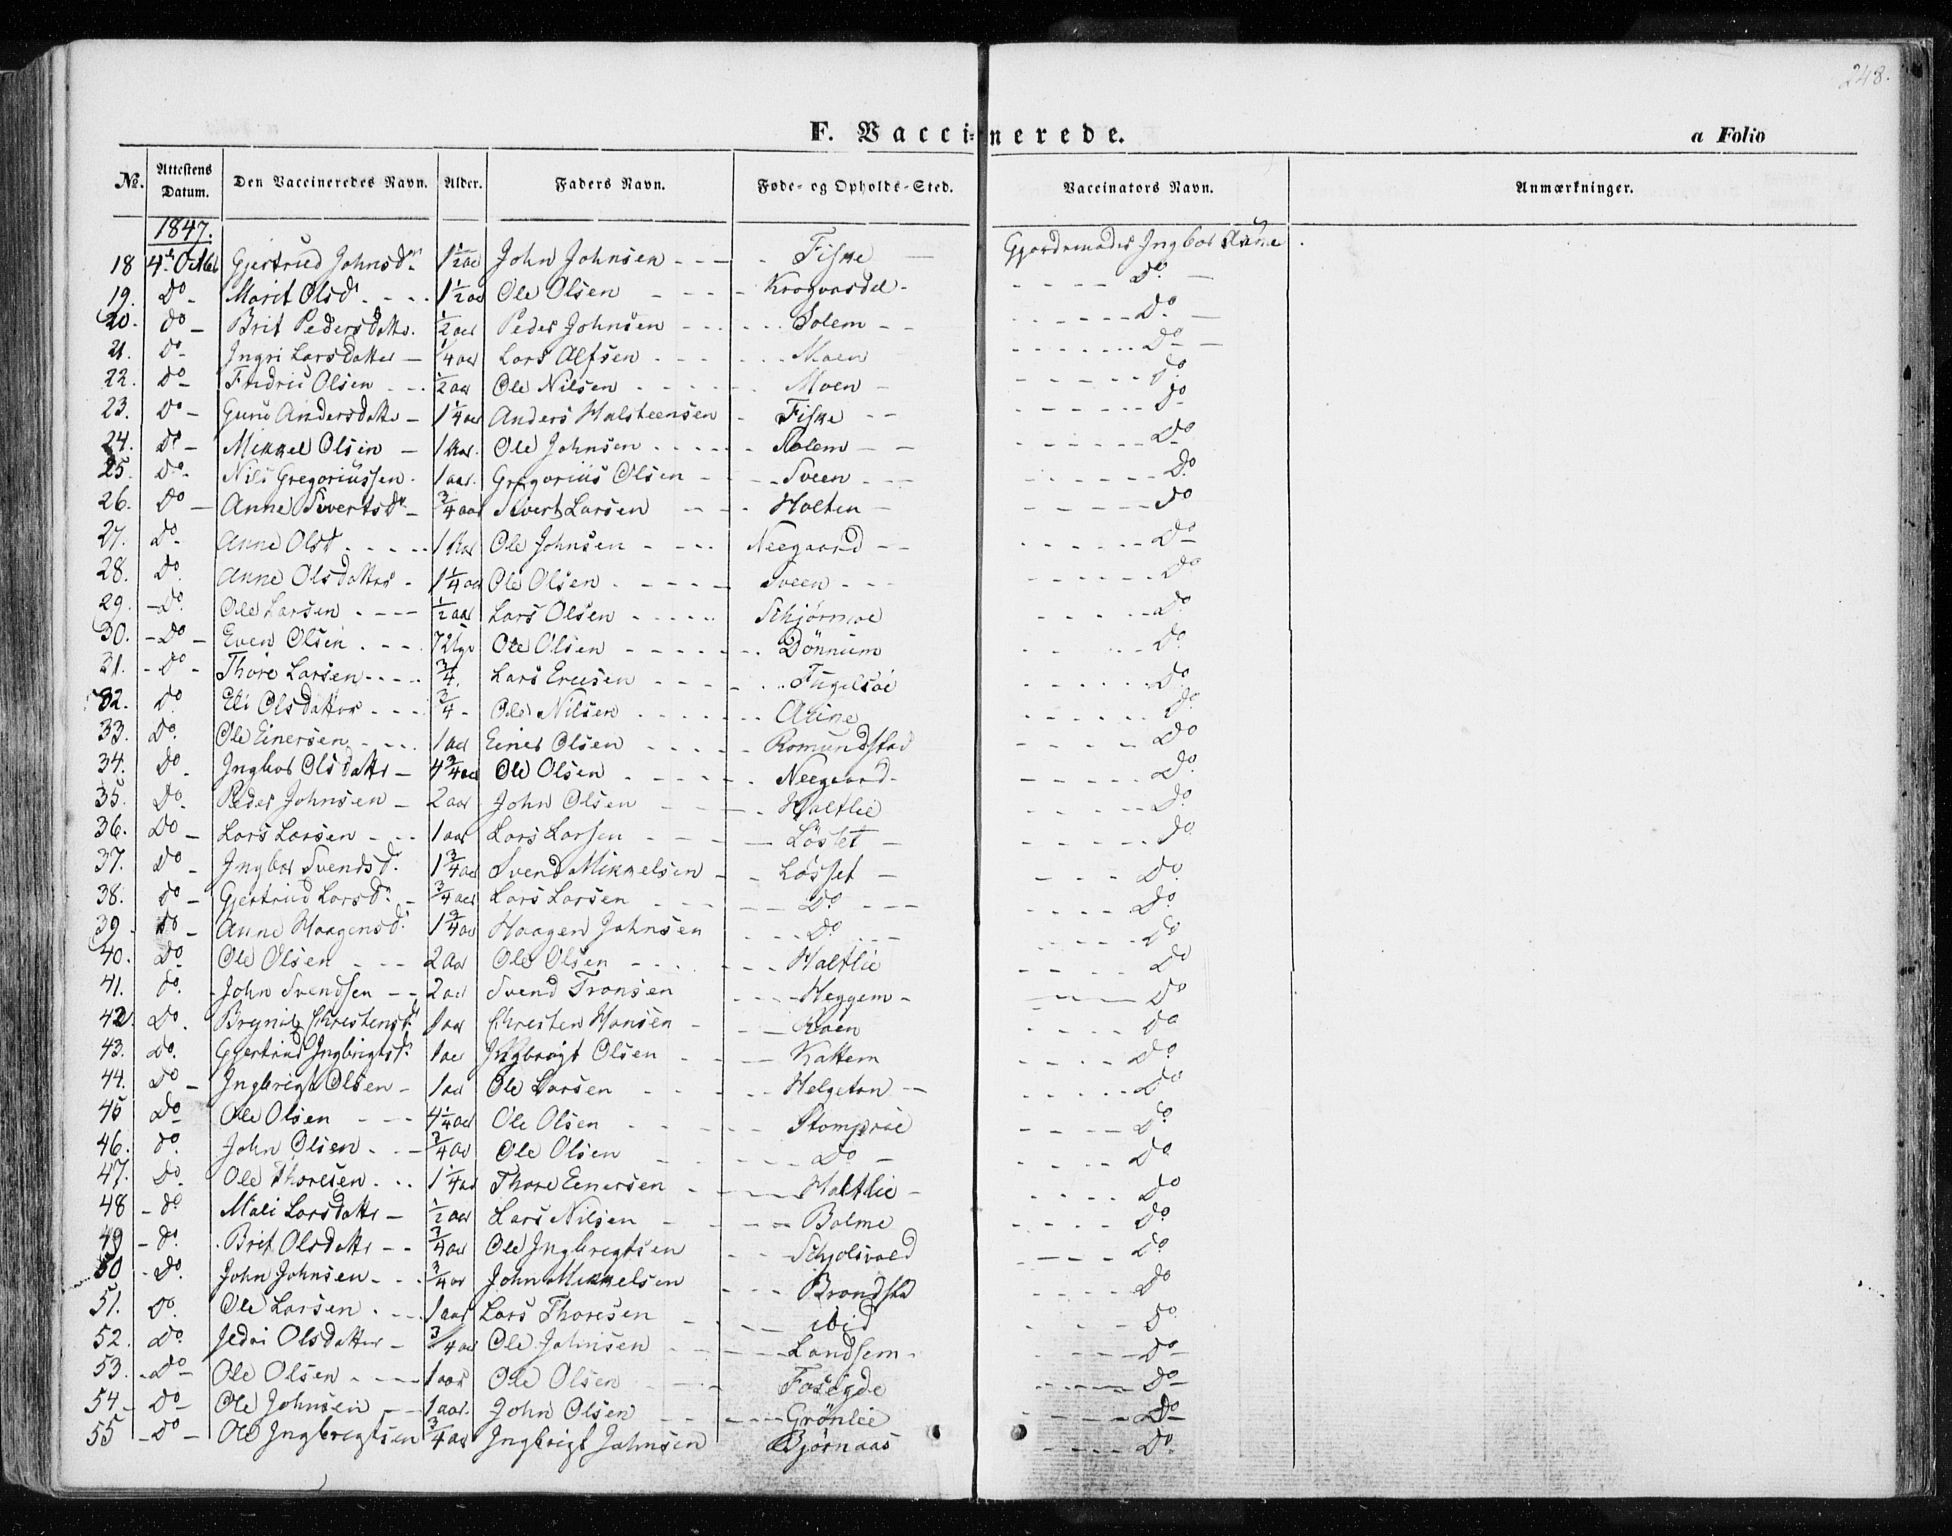 248.
F. Vaccinerede.
a Folio
No. Attestens Datum. Den Vaccineredes Navn. Alder. Faders Navn. Føde- og Opholds-Sted. Vaccinators Navn. Anmærkninger.
1847.
18 4de Octbr Gjertrud Johnsdr 1 1/2 aar John Johnsen Fiske Gjordemoder Ingbor Aune
19. Do Marit Olsd. 1 1/2 aar Ole Olsen Krogvasdel Do
20. do Brit Pedersdatter 1/2 aar Peder Johnsen Solem Do
21. Do Ingri Larsdatter 1/4 aar Lars Olfsen Moen Do
22. Do Fredric Olsen 1/2 aar Ole Nilsen Moen Do
23. Do Guru Andersdatter 1 1/4 aar Anders Halsteensen Fiske Do
24. Do Mikkel Olsen 1 aar Ole Johnsen Solem Do
25. Do Nils Gregoriussen 1 aar Gregorius Olsen Sveen Do
26. Do Anne Sivertsdr 3/4 aar Sivert Larsen Holten Do
27. Do Anne Olsd 1 aar Ole Johnsen Neegaard Do
28. Do Anne Olsdatter 1 1/4 aar Ole Olsen Sveen Do
29. Do Ole Larsen 1/2 aar Lars Olsen Schjørmoe Do
30. Do Even Olsen Ole Olsen Dønnum Do
31. Do Thore Larsen 3/4 Lars Ericsen Fugelsøe Do
32. Do Eli Olsdatter 3/4 Ole Nilsen Aune Do
33. Do Ole Einersen 1 aar Einer Olsen Romundstad Do
34. Do Ingbor Olsdatter 4 3/4 aar Ole Olsen Neegaard Do
35. Do Peder Johnsen 2 aar John Olsen Haltlie Do
36. Do Lars Larsen 1 aar Lars Larsen Løset Do
37. Do Ingbor Svendsd. 1 3/4 aar Svend Mikkelsen Løsset Do
38. Do Gjertrud Larsd. 3/4 aar Lars Larsen Do Do
39 Do Anne Haagensd. 1 3/4 aar Haagen Johnsen Do Do
40. Do Ole Olsen 2 aar Ole Olsen Haltlie Do
41. do. John Svendsen 2 aar Svend Tronsen Heggem Do
42 Do. Christensd. 1 aar Christen Hansen Do
43. Do. Gjertrud Ingbrigtsd. 1 aar Ingbrigt Olsen Kattem Do
44. Do Ingbrigt Olsen 1 aar Ole Larsen Helgeton Do
45 Do Ole Olsen 4 1/4 aar Ole Olsen Stomprøe Do
46. do. John Olsen 3/4 aar Ole Olsen Do Do
47. Do. Ole Thoresen 1 1/4 aar Thore Einersen Haltlie Do
48 do Mali Larsdatter 1/2 aar Lars Nilsen Bolme Do
49 do. Brit Olsdatter 3/4 aar Ole Ingbrigtsen Schjolsvold Do
50 Do. John Johnsen 3/4 aar John Mikkelsen Brandsta Do
51. Do. Ole Larsen 1 aar Lars Thoresen ibid Do
52. Do Jedri Olsdatter 3/4 aar Ole Johnsen Landsem Do
53. Do Ole Olsen 1 aar Ole Olsen Foseigde Do
54 Do Ole Johnsen 1 aar John Olsen Grønlie Do
55 Do Ole Ingbrigtsen 3/4 aar Ingbrigt Johnsen Bjørnaas Do